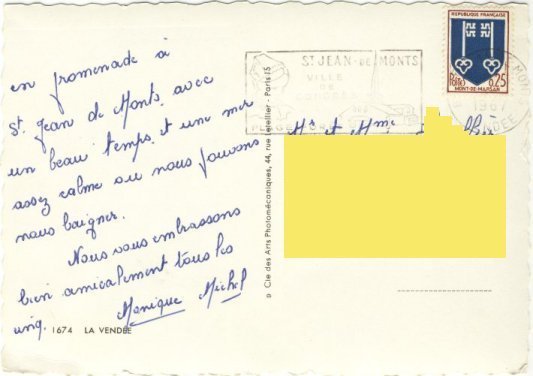 en promenade à
St Jean de Monts avec
un beau temps et une mer
assez calme où nous pouvons
nous baigner.
Nous vous embrassons
bien amicalement tous les
cinq.
Monique Michel
1674 LA VENDÉE
Cie des Arts Photomécaniques, 44, rue Letellier - Paris 15
ST JEAN DE MONTS
VILLE
DE
CONGRÈS
PLAGE
1967
VENDÉE
REPUBLIQUE FRANÇAISE
Postes 0,25
MONT-DE-MARSAN
Mr et Mme